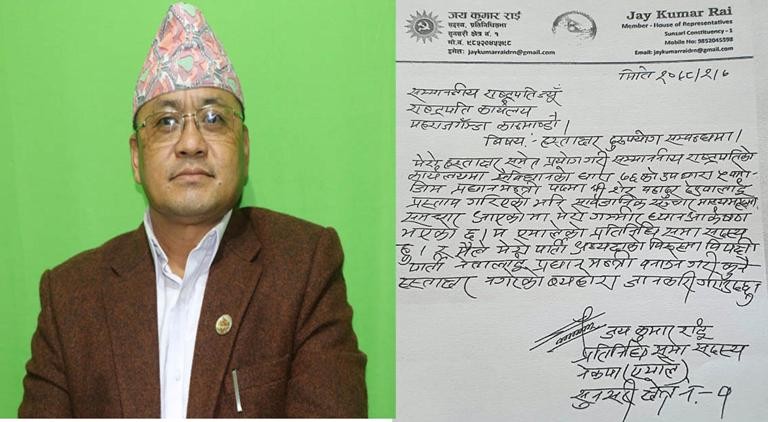 जय कुमार राई
सदस्य, प्रतिनिधिसभा
सुनसरी क्षेत्र नं. १
मो.नं. ९८५२०४५५९८
इमेल: jaykumarraidrn@gmail.com
Jay Kumar Rai
Member - House of Representatives
Sunsari Constituency - 1
Mobile No: 9852045598
Email: jaykumarraidrn@gmail.com
मिति २०७८/२/७
सम्माननीय राष्ट्रपतिज्यू
राष्ट्रपति कार्यलय
महाराजगञ्ज काठमाण्डौ।
विषय:- हस्ताक्षर दुरुपयोग सम्बन्धमा।
मेरो हस्ताक्षर समेत प्रयोग गरी सम्माननीय राष्ट्रपतिको
कार्यलयमा संविधानको धारा ७६ को उपधारा ५ बमो-
जिम प्रधानमन्त्री पदमा श्री शेर बहादुर देउवालाई
प्रस्ताव गरिएको भनि सार्वजनिक संचार माध्यममा
समाचार आएकोमा मेरो गम्भीर ध्यानआकर्षण
भएको छ। म एमालेको प्रतिनिधि सभा सदस्य
हुँ। र मैले मेरो पार्टी अध्यक्षको विरुद्धमा विपक्षी
पार्टी नेतालाई प्रधान मन्त्री बनाउन गरी कुनै
हस्ताक्षर नगरेको ब्यहोरा जानकारी गराउँदछु
जय कुमार राई
प्रतिनिधि सभा सदस्य
नेकपा (एमाले)
सुनसरी क्षेत्र नं.- १